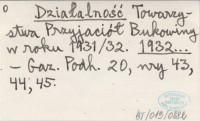 Działalność Towarzy-
stwa Przyjaciół Bukowiny
w roku 1931/32. 1932...
- Gaz. Podh. 20, nry 43,
44, 45.